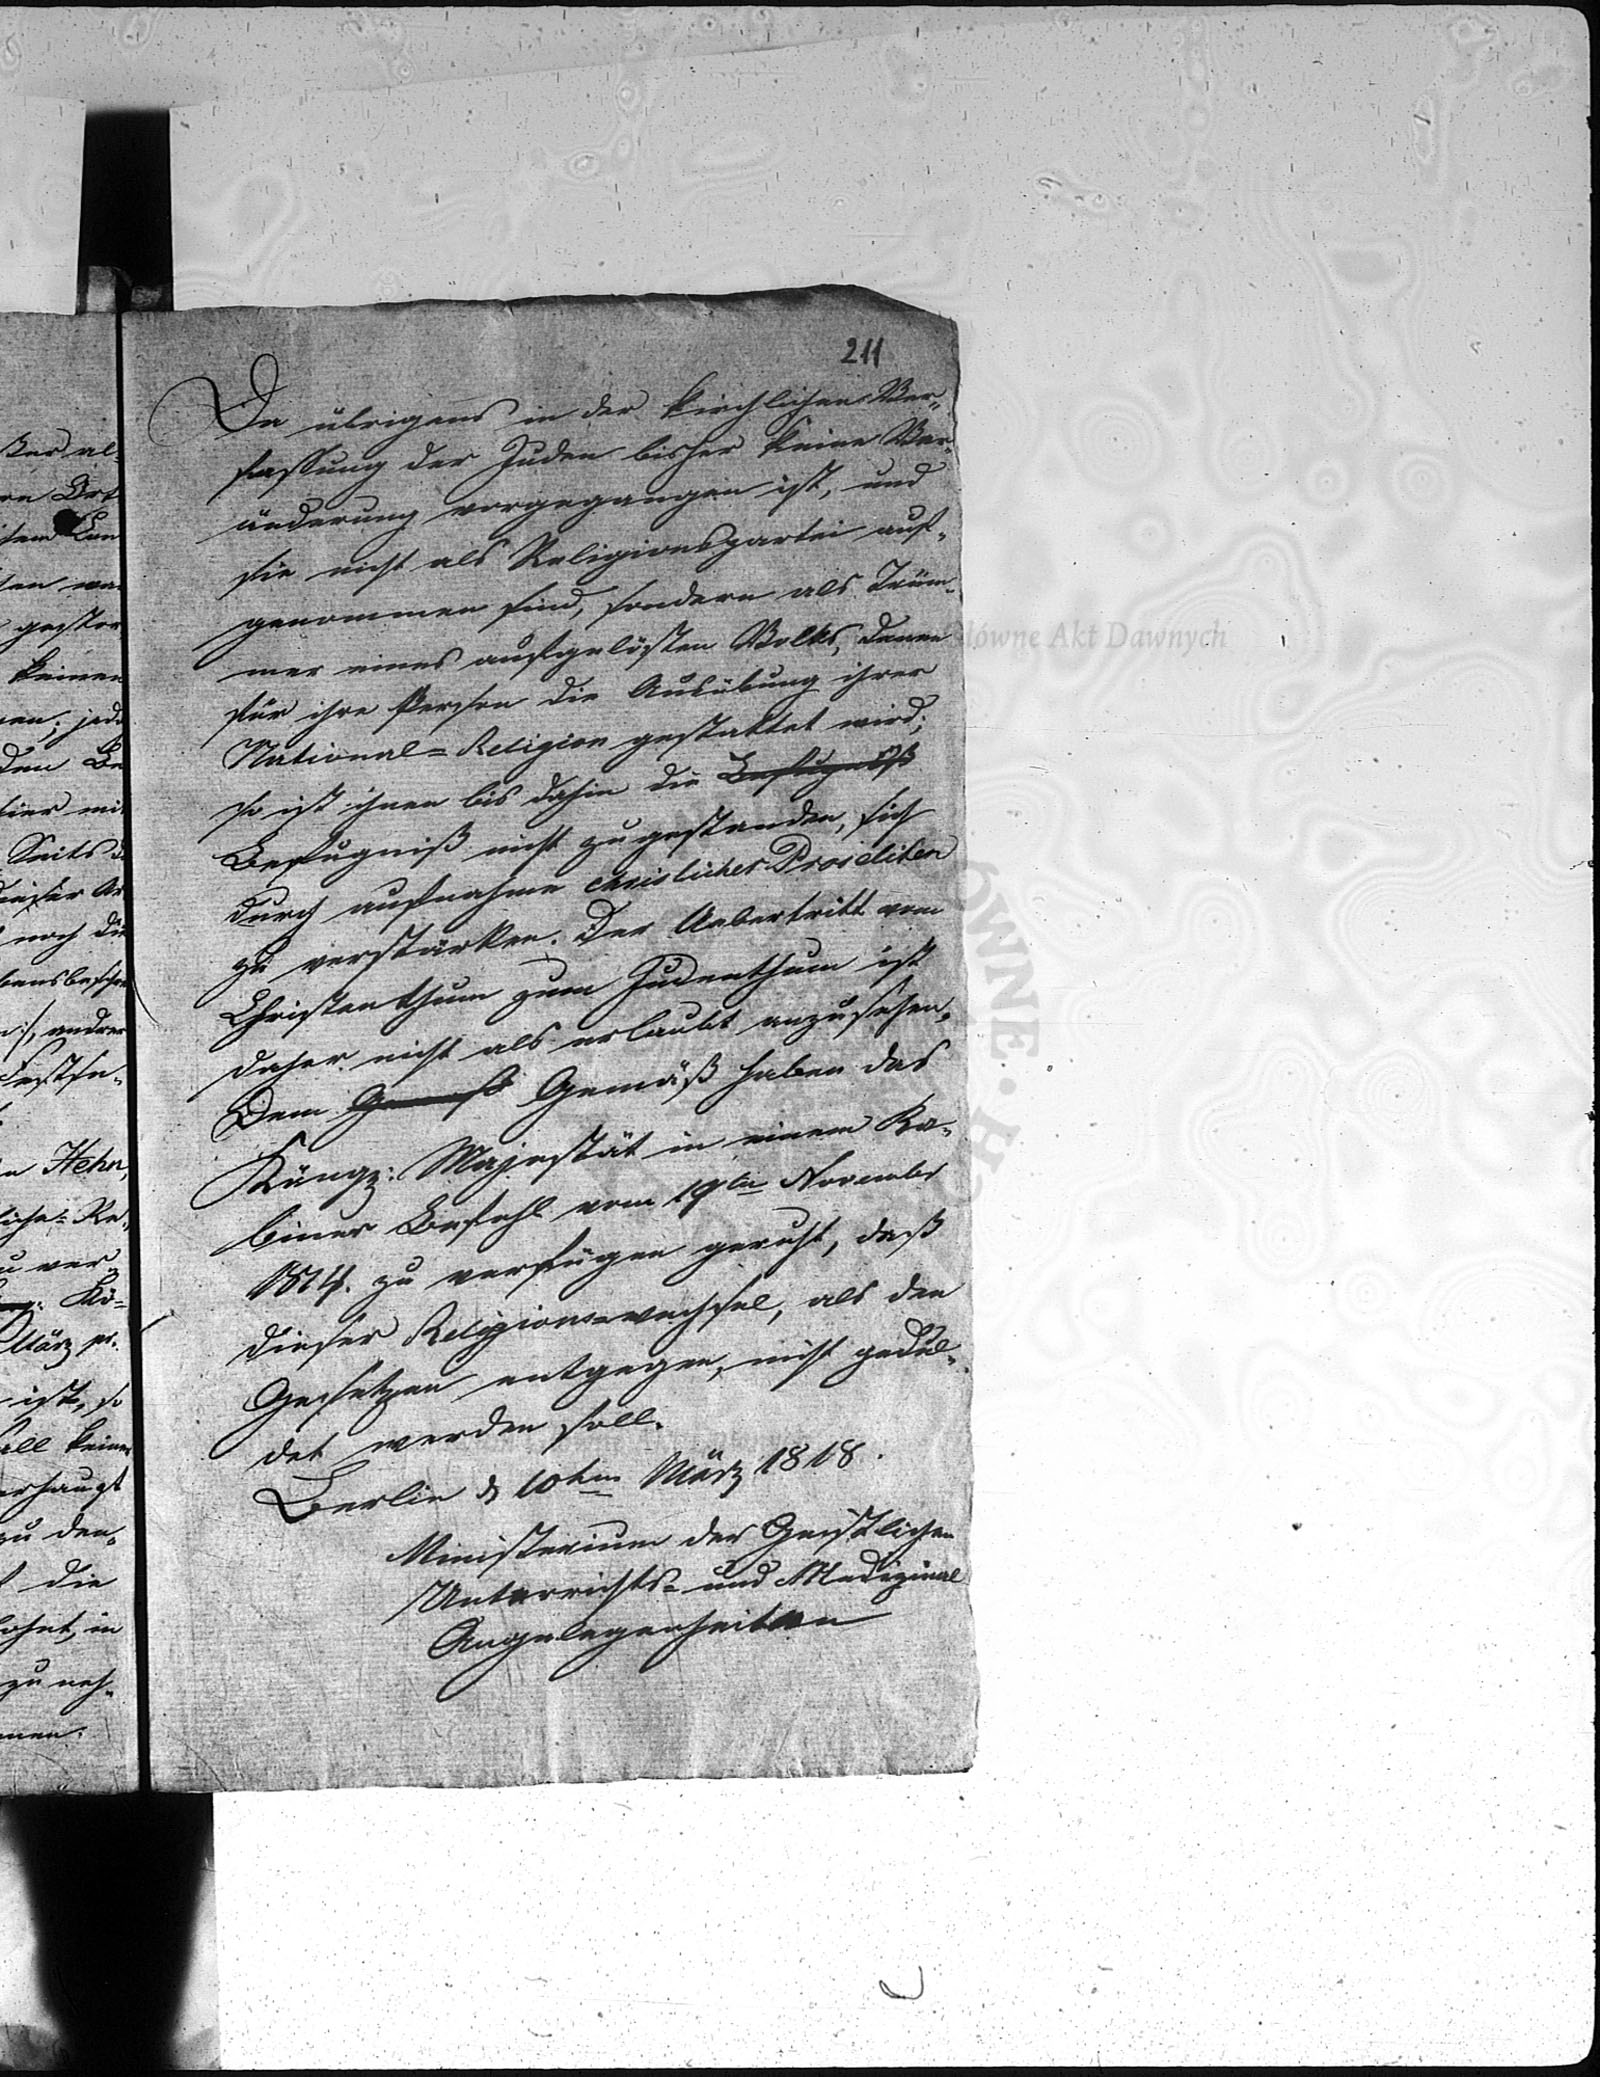 211
Da übrigens in der kirchlichen Ver-
fassung der Juden bisher keine Ver-
änderung vorgegangen ist, und
sie nicht als Religionspartei auf-
genommen sind, sondern als Trüm-
mer eines aufgelösten Volks, denen
für ihre Person die Ausübung ihrer
National-Religion gestattet wird;
so ist ihnen bis dahin die Befugniß
Befugniß nicht zugestanden, sich
durch aufnahme chrislicher Proseliten
zu verstärken. Der Uebertritt vom
Christenthum zum Judenthum ist
daher nicht als erlaubt anzusehen.
Dem Gemäß haben das
Königs: Majestät in einem Ka-
biner Befehl vom 19ten November
1814. zu verfügen geruht, daß
dieser Religionswechsel, als den
Gesetzen entgegen, nicht gedul-
det werden soll.
Berlin d 10ten März 1818.
Ministerium der Geistlichen
Unterrichts- und Medizinal
Angelegenheiten
ßer al-
keinen
jede
den Be
Seits
noch die
andrer
Hehn,
zu ver-
März pr.
ist, so
all keine
zu den-
die
in
zu neh-
men.
Główne Akt Dawnych
ÓWNE · H